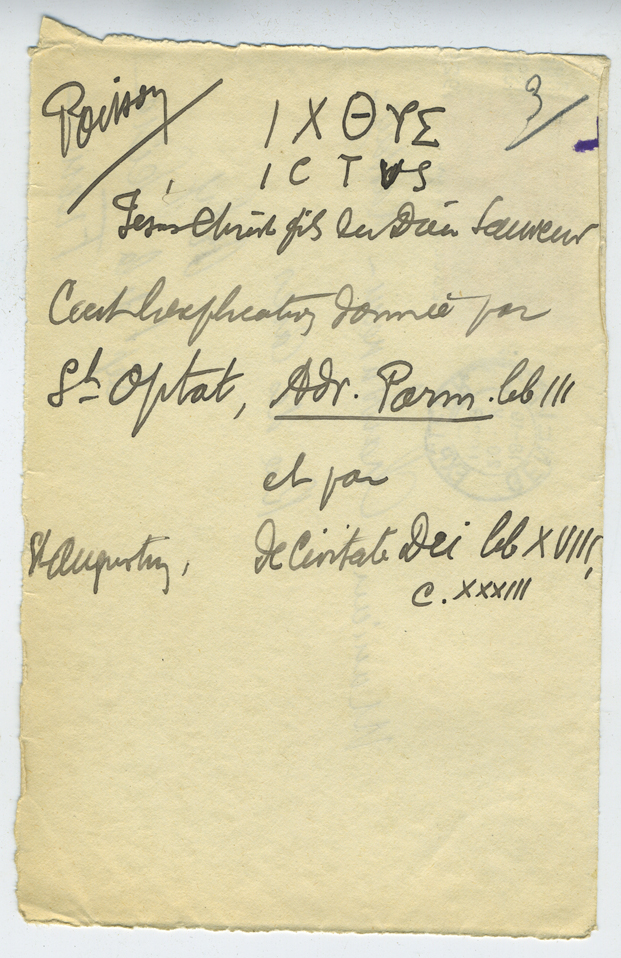 Poisson
3
Ι Χ Θ Υ Σ
I C T U S
Jésus Christ fils de Dieu Sauveur
C'est l'explication donnée par
St Optat, Adv. Parm. lib III
et par
St Augustin, De Civitate Dei lib XVIII,
c. XXXIII